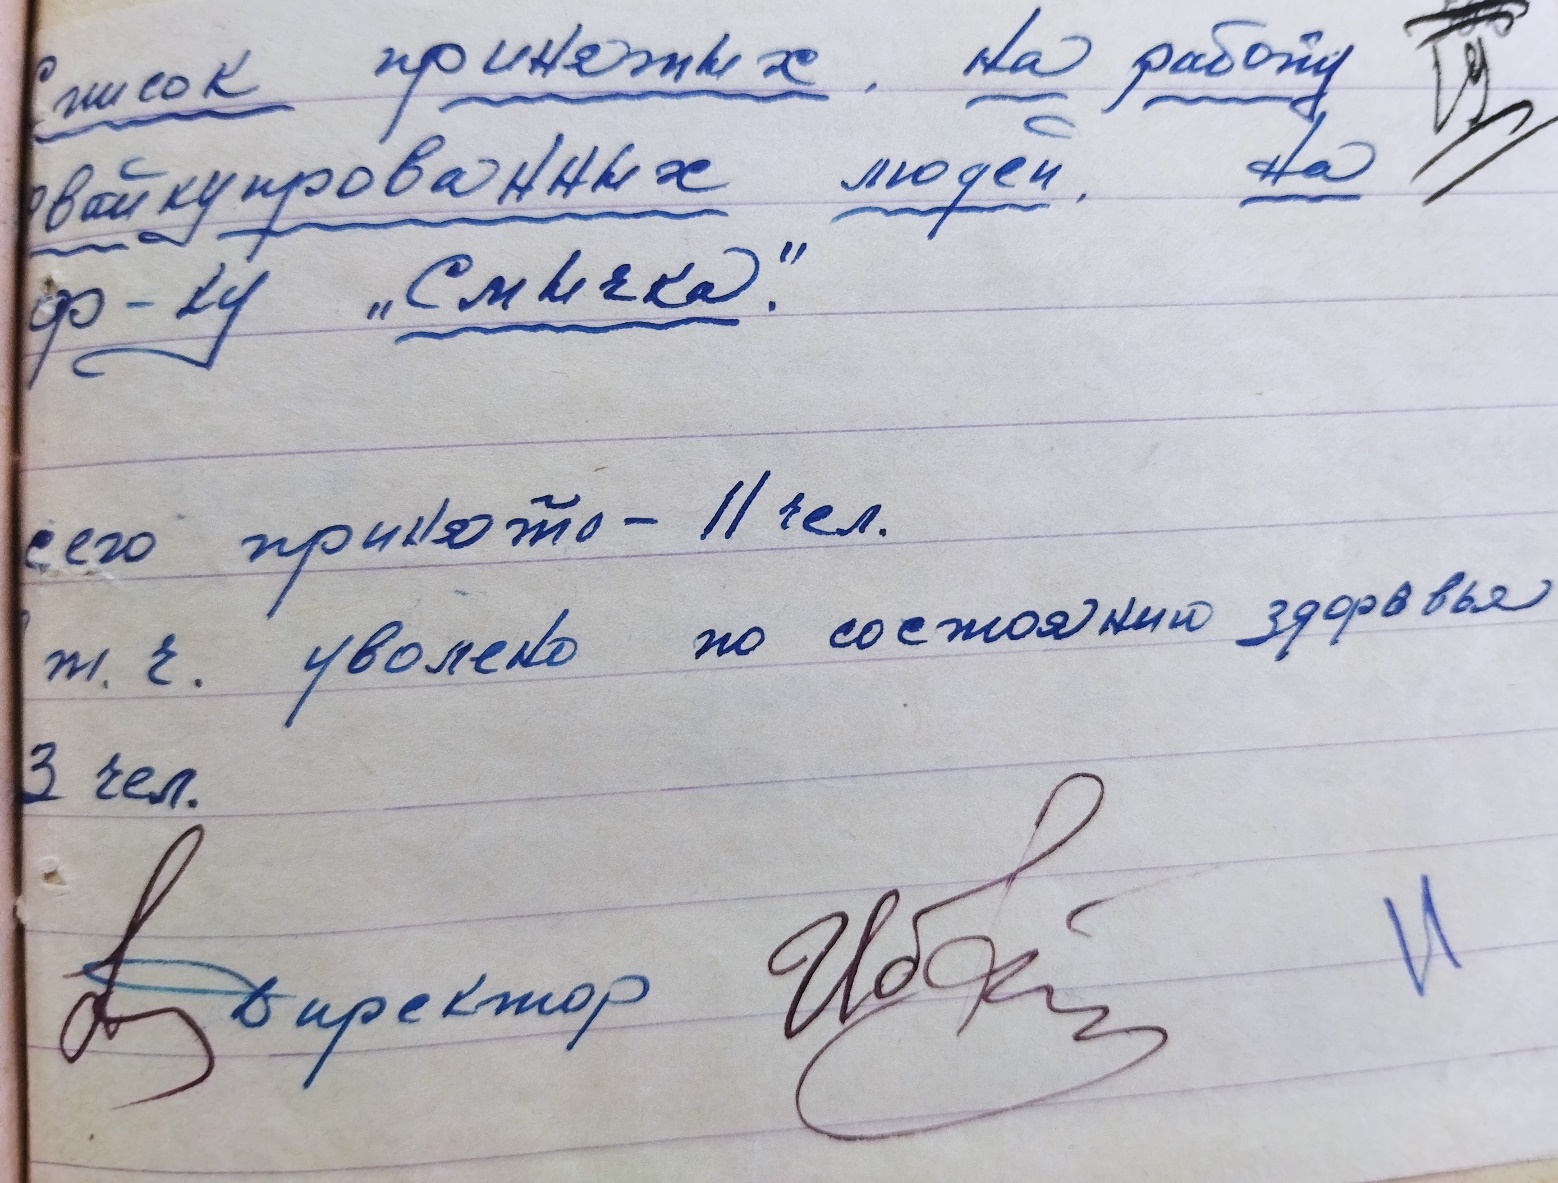 Список принятых на работу
эвайкупрованных людей, на
ф-ку „Смычка."
сего принято - 11 чел.
т. ч. уволено по состоянию здоровья
3 чел.
Директор